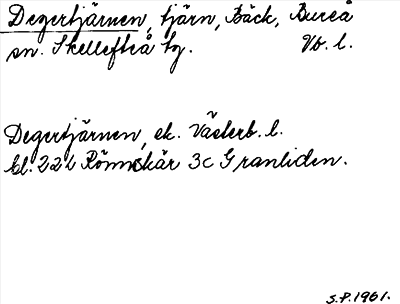 Degertjärnen, tjärn, Bäck, Bureå
sn. Skellefteå tg. Vb. l.
Degertjärnen, ek. Västerb. l.
bl. 22 L Rönnskär 3c Granliden.
S.P. 1961.